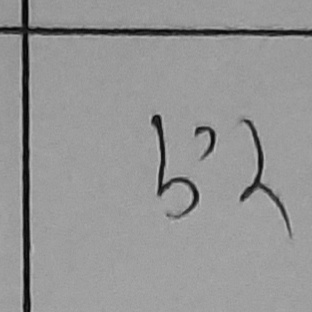 גיל